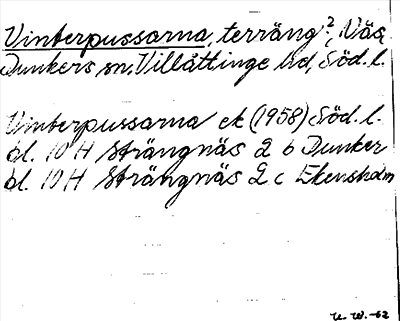 Vinterpussarna, terräng?, Näs
Dunkers sn, Villåttinge hd, Söd. l.
Vinterpussarna ek (1958) Söd. l.
bl. 10 H Strängnäs 2 b Dunker
bl. 10 H Strängnäs 2 c Ekensholm
U. W. -62